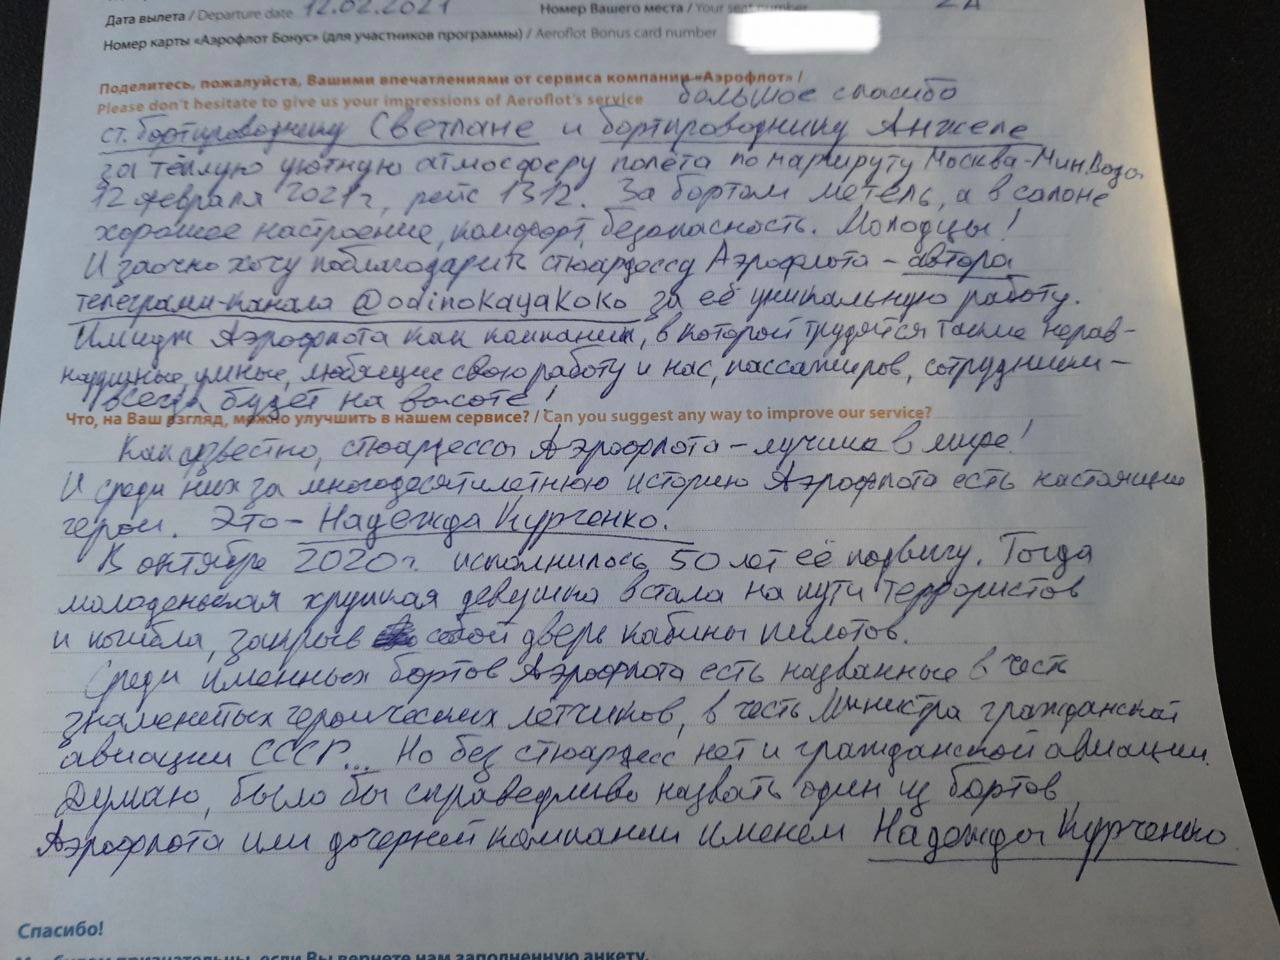 Дата вылета / Departure date 12.02.2021 Номер Вашего места / Your seat number 2A
Номер карты «Аэрофлот Бонус» (для участников программы) / Aeroflot Bonus card number
Поделитесь, пожалуйста, Вашими впечатлениями от сервиса компании «Аэрофлот» /
Please don't hesitate to give us your impressions of Aeroflot's service большое спасибо
ст. бортпроводнику Светлане и бортпроводнику Анжеле
за тёплую уютную атмосферу полёта по маршруту Москва-Мин.Воды
12 февраля 2021г, рейс 1312. За бортом метель, а в салоне
хорошее настроение, комфорт, безопасность. Молодцы!
И заочно хочу поблагодарить стюардессу Аэрофлота - автора
телеграмм-канала @odinokayakoko за её уникальную работу.
Имидж Аэрофлота как компании, в которой трудятся такие нерав-
нодушные, умные, любящие свою работу и нас, пассажиров, сотрудники -
всегда будет на высоте!
Что, на Ваш взгляд, можно улучшить в нашем сервисе? / Can you suggest any way to improve our service?
Как известно, стюардессы Аэрофлота - лучшие в мире!
И среди них за многодесятилетнюю историю Аэрофлота есть настоящие
герои. Это - Надежда Курченко.
В октябре 2020г. исполнилось 50 лет её подвигу. Тогда
молоденькая хрупкая девушка встала на пути террористов
и погибла, закрыв собой дверь кабины пилотов.
Среди именных бортов Аэрофлота есть названные в честь
знаменитых героических летчиков, в честь Министра гражданской
авиации СССР... Но без стюардесс нет и гражданской авиации.
Думаю, было бы справедливо назвать один из бортов
Аэрофлота или дочерней компании именем Надежды Курченко.
Спасибо!
Мы будем признательны, если Вы вернете нам заполненную анкету.